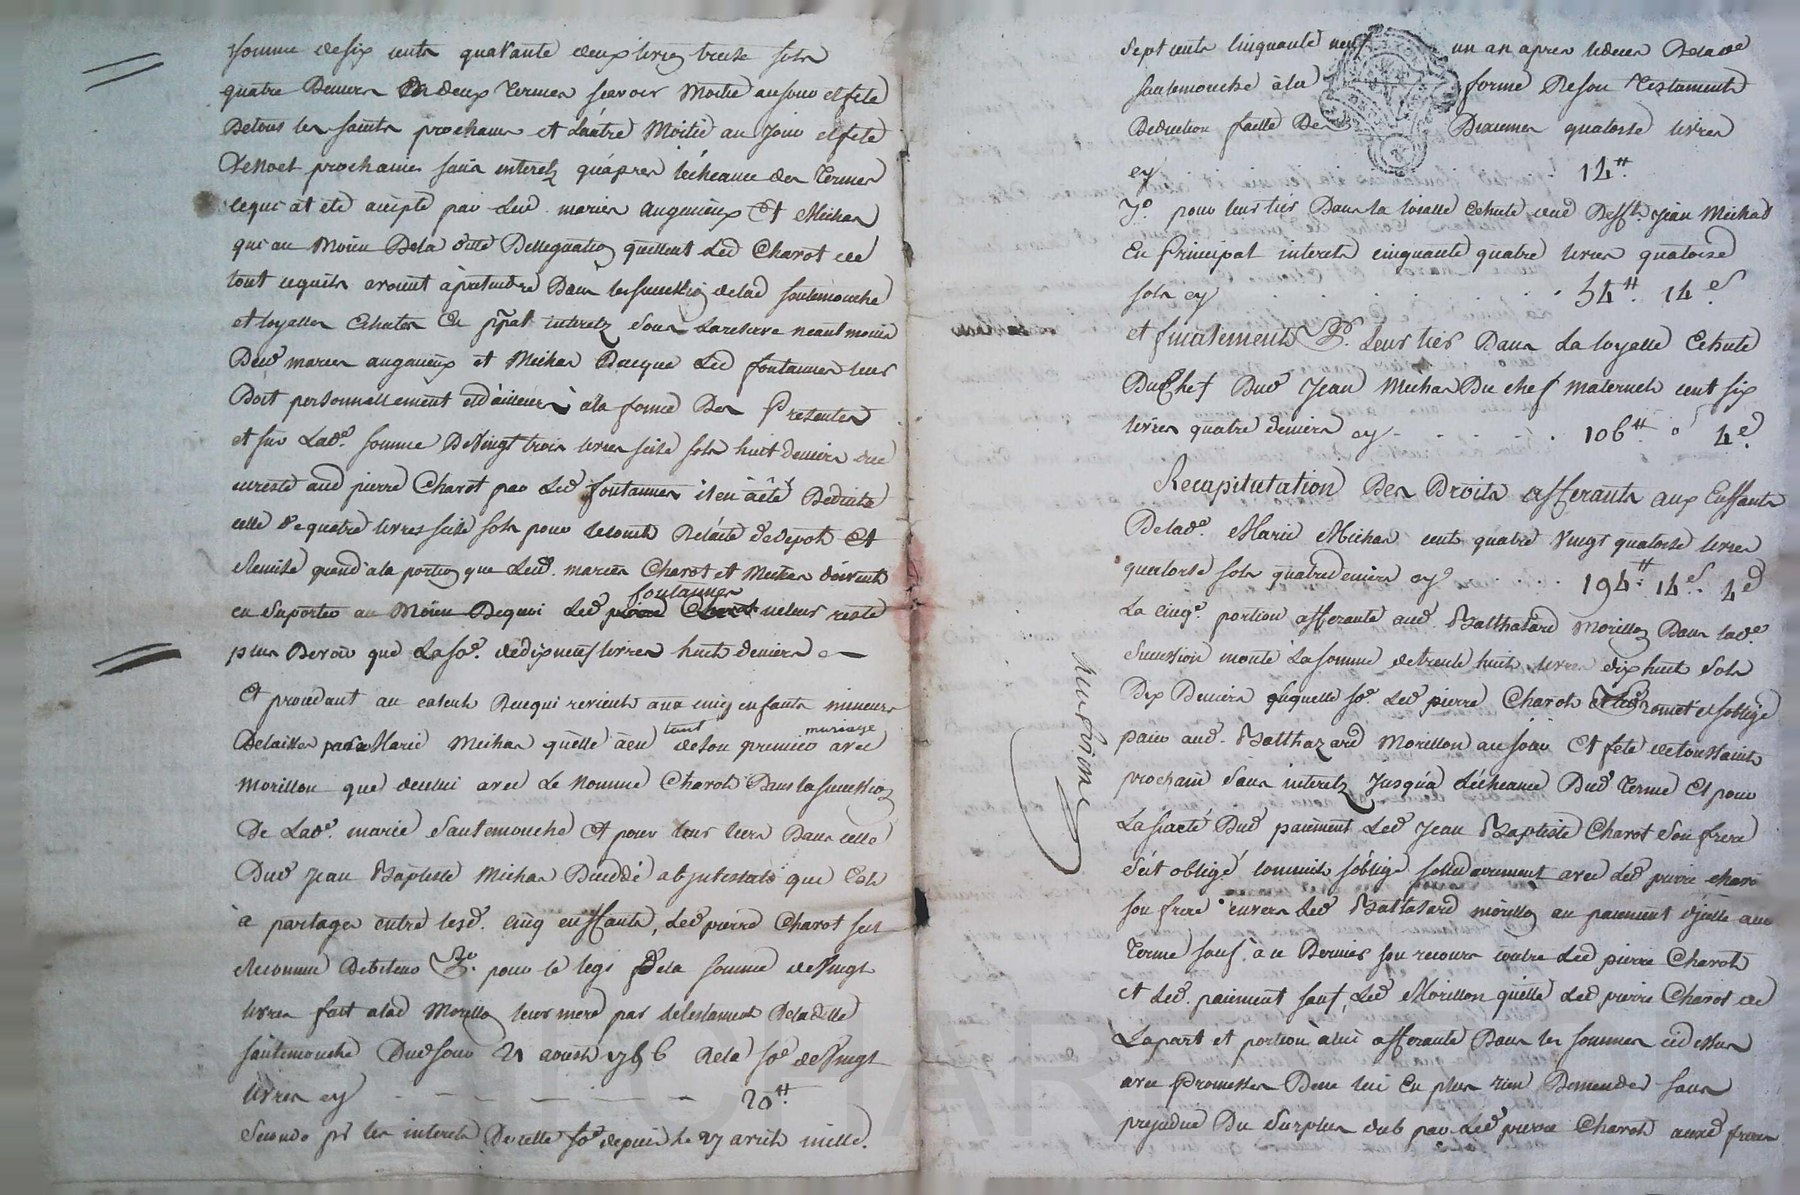 somme de six cents quarante deux livres treise sols
quatre deniers En deux termes scavoir Moitié au jour et fete
De tous les saints prochains et L'autre Moitié au jour et fete
De Noel prochaines sans interets qu'apres l'echeance des termes
ce qui at eté accepté par Lesd. mariés augenieux Et Michas
qui au Moien De la ditte Dellegation quittent Led Charot de
tout ce quils avoient à pretendre Dans les succession de lad sautemouche
et loyalles Echutes En p̃pal interets sous La reserve neantmoins
Desd mariés augenieux et Michas De ce que Led fontannes leur
Doit personnellement et d'ailleurs à la forme Des Presentes
et sur Lad.e somme De Vingt trois livres seise sols huit deniers due
de reste aud pierre Charot par Led fontannes il en à eté Deduitte
celle de quatre livres seise sols pour le coust De l'acte de depot Et
Remise quand a la portion que Lesd. mariés Charot et Michas doivent
fontannes
en suporter au Moien De quoi Led pierre Charot ne leur reste
plus Devoir que La so.e de dix neuf livres huit deniers
Et procedant au calcul De ce qui revient aux cinq enfants mineurs
tant mariage
Delaissés par Marie Michas qu'elle à eu de son premier avec
Morillon que de celui avec Le Nommé Charot Dans la succession
De Lad.e marie Sautemouche Et pour leur tiers Dans celle
Dud Jean Baptiste Michas Decedé ab intestats que Est
à partager entre lesd. cinq enffants, Led pierre Charot s'est
Reconnu Debiteur P.o pour le legs De la somme de Vingt
livres fait a lad Morillon leur mere par le testament De la ditte
sautemouche Dud jour 21 aoust 1756 De la so.e de Vingt
livres cy 20tt
Secondo pr les interets De celle so.e depuis le 27 avril mille.
Sept cents cinquante neuf un an apres le deces De lad.e
sautemouche à la forme De son Testament
Deduction faitte Des Dixiemes quatorse livres
cy 14tt
3.o pour leur tiers Dans la loialle Echute dud Deff.t Jean Michas
En Principal interets cinquante quatre livres quatorse
sols cy 54tt 14s
et finalement P.r Leur tiers Dans La loyalle Echute
Du Chef Dud Jean Michas Du chef maternels cent six
livres quatre deniers cy 106tt 0 4d
Recapitulation Des Droits afferants aux Enffants
De lad.e Marie Michas cents quatre Vingt quatorse livres
quatorse sols quatre deniers cy 194tt 14s 4d
La cinq.e portion afferante aud. Balthazard Morillon Dans lad.e
Sucession monte La somme de trente huit livres dix huit sols
Dix Deniers Laquelle so.e Led pierre Charot promet et s'oblige
paier aud. Balthazard Morillon au jour Et fete de toussaints
prochain sans interets Jusqu'a L'echeance Dud Terme Et pour
La sureté Dud paiement Led Jean Baptiste Charot son frere
s'est obligé comme il s'oblige sollidairement avec Led pierre charot
son frere envers Led Baltazard morillon au paiement d'icelle aud
Terme sauf à ce Dernier son recours contre Led pierre Charot
et Led. paiement fait, Led Morillon quitte Led pierre Charot de
La part et portion à lui afferante Dans les sommes cidessus
avec Promesses De ne lui En plus rien Demander sans
prejudice Du Surplus dub par Led pierre Charot auxd freres